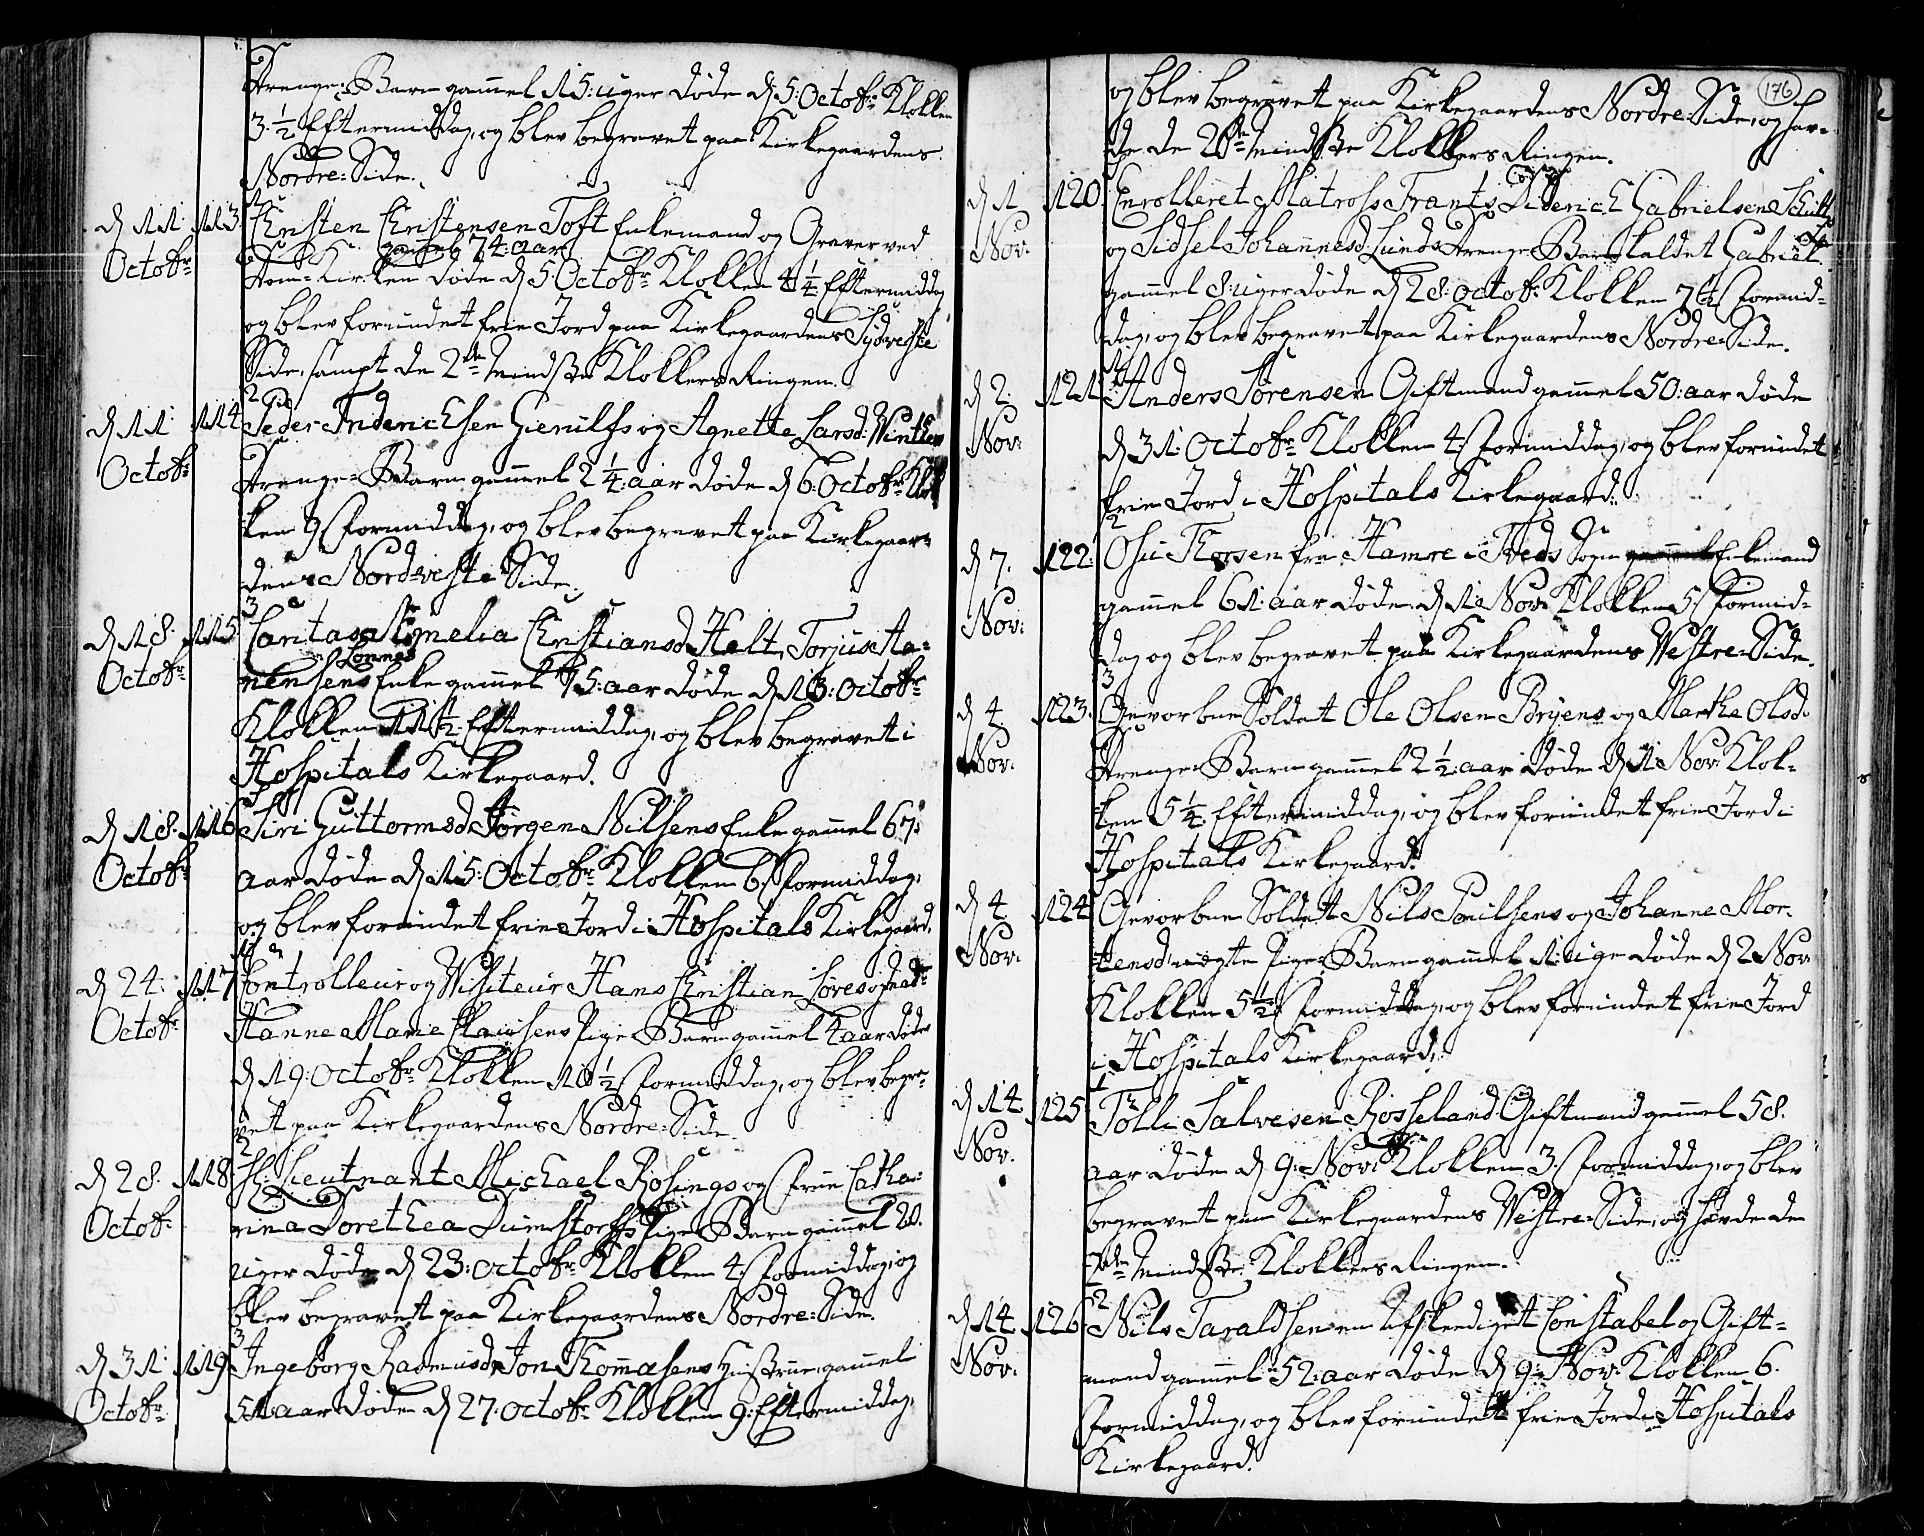 Drenge-Barn gamel 15: uger døde d. 5: Octobr. Klokken
3 1/2 Eftermiddag, og blev begravet paa Kirkegaardens
Nordre-Side.
d. 11. 113. 1 Christen Christensen Toft Enkemand og Graver ved
gamel 74: aar
Octobr. Dom-Kirken døde d. 5 Octobr. Klokken 4 1/4 Eftermiddag
og blev forundet frie Jord paa Kirkegaardens Sydveste
Side, sampt de 2de mindste Klokkers Ringen.
d. 11. 114. 2 Peder Fridericksen Gierulfs og Agnette Larsd: Winther
Octobr. Drenge-Barn gamel 2 1/4: aar døde d. 6: Octobr. Klok
ken 9 Formiddag, og blev begravet paa Kirkegaar-
dens Nordveste Side.
d. 18. 115. 3 Caritas Cornelia Christiansd: Halt, Torjus
Lommes
Octobr. Enke gamel 75: aar døde d. 13: Octobr.
Klokken 11 1/2 Eftermiddag, og blev begravet i
Hospitals Kirkegaard.
d. 18. 116. Siri Guttormsd: Jørgen Nilsens Enke gamel 67:
Octobr. aar døde d. 15: Octobr. Klokken 6: Formiddag,
og blev forundet frie Jord i Hospitals Kirkegaard.
d. 24. 117. 1 Controlleur og Visiteur Hans Christian
Octobr. Hanne Marie Clausens Pige-Barn gamel 4 aar døde
d. 19: Octobr. Klokken 10 1/2 Formiddag, og blev begra-
vet paa Kirkegaardens Nordre-Side.
d. 28. 118. 2 Hr: Lieutnant Michael Rosings og Frue Catha-
Octobr. rina Dorethea Dumstorfs Pige-Barn gamel 20.
uger døde d. 23: Octobr. Klokken 4: Formiddag, og
blev begravet paa Kirkegaardens Nordre-Side.
d. 31. 119. 3 Ingeborg Rasmusd: Jon Thomasens Hustrue, gamel
Octobr. 51 aar døde d. 27. Octobr. Klokken 9: Eftermiddag,
176
og blev begravet paa Kirkegaardens Nordre-Side, og hav-
de de 2de mindste Klokkers Ringen.
d. 1 120. Enrolleret Matrosss Frants Diderich Gabrielsen Schultz
Nov. og Sidsel Johannesd: Lunds Drenge-Barn kaldet Gabriel
gamel 8: uger døde d. 28: Octobr. Klokken 7 1/2 Formid-
dag, og blev begravet paa Kirkegaardens Nordre-Side.
d. 2. 121. 1 Anders Sørensen Giftmand gamel 50: aar døde
Nov. d. 31: Octobr. Klokken 4: Formiddag, og blev forundet
frie Jord i Hospitals Kirkegaard.
d. 7. 122. 2 Osu Thorsen fra Hamre i Sogn Enkemand
Nov. gamel 61: aar døde d. 1 Nov: Klokken 5: Formid-
dag og blev begravet paa Kirkegaardens Vestre-Side.
d. 4. 123. 3 Gevorben Soldat Ole Olsen Bryens og Marthe Olsd:
Nov. Drenge-Barn gamel 2 1/2: aar døde d. 1 Nov: Klok-
ken 5 1/4 Eftermiddag, og blev forundet frie Jord i
Hospitals Kirkegaard.
d. 4. 124. Gevorben Soldat Nils Poulsens og Johanne Mor-
Nov. tensd: uægte Pige-Barn gamel 1: uge døde d. 2 Nov:
Klokken 5 1/2 Formiddag, og blev forundet frie Jord
i Hospitals Kirkegaard.
d. 14. 125. 1 Tolli Salvesen Rosseland Giftmand gamel 58.
Nov. aar døde d. 9: Nov: Klokken 3: Formiddag, og blev
begravet paa Kirkegaardens Vestre-Side, og havde de
2de mindste Klokkers Ringen.
d. 14. 126. 2 Nils Taraldsen en Afskediget Constabel og Gift-
Nov. mand gamel 52: aar døde d. 9: Nov: Klokken 6.
Formiddag, og blev forundet frie Jord i Hospitals
Kirkegaard.